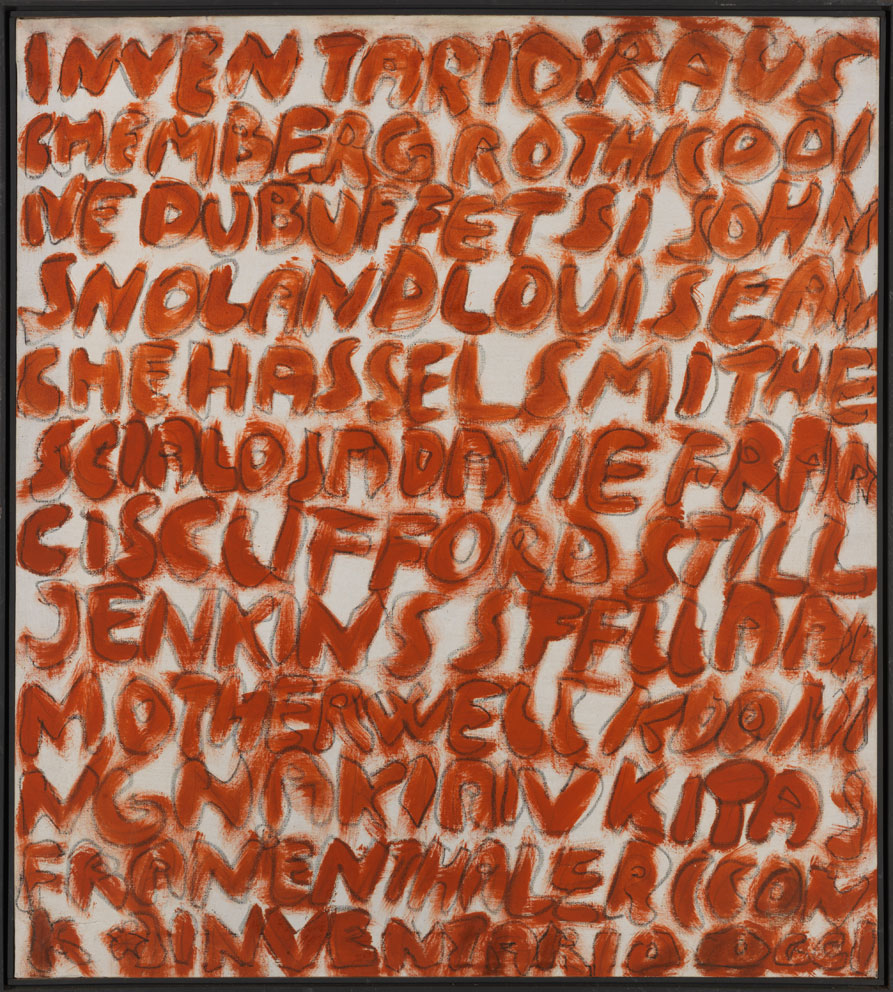 INVENTARIO:RAUS
CHEMBERGROTHKODI
NE DUBUFFET SI JOHN
SNOLANDLOUISEAM
CHEHASSELSMITHE
SCIALOJADAVIEFRAN
CISCLIFFORDSTILL
JENKINSSTELLA
MOTHERWELLKOONI
NG
FRANENTHALER
INVENTARIO OGGI